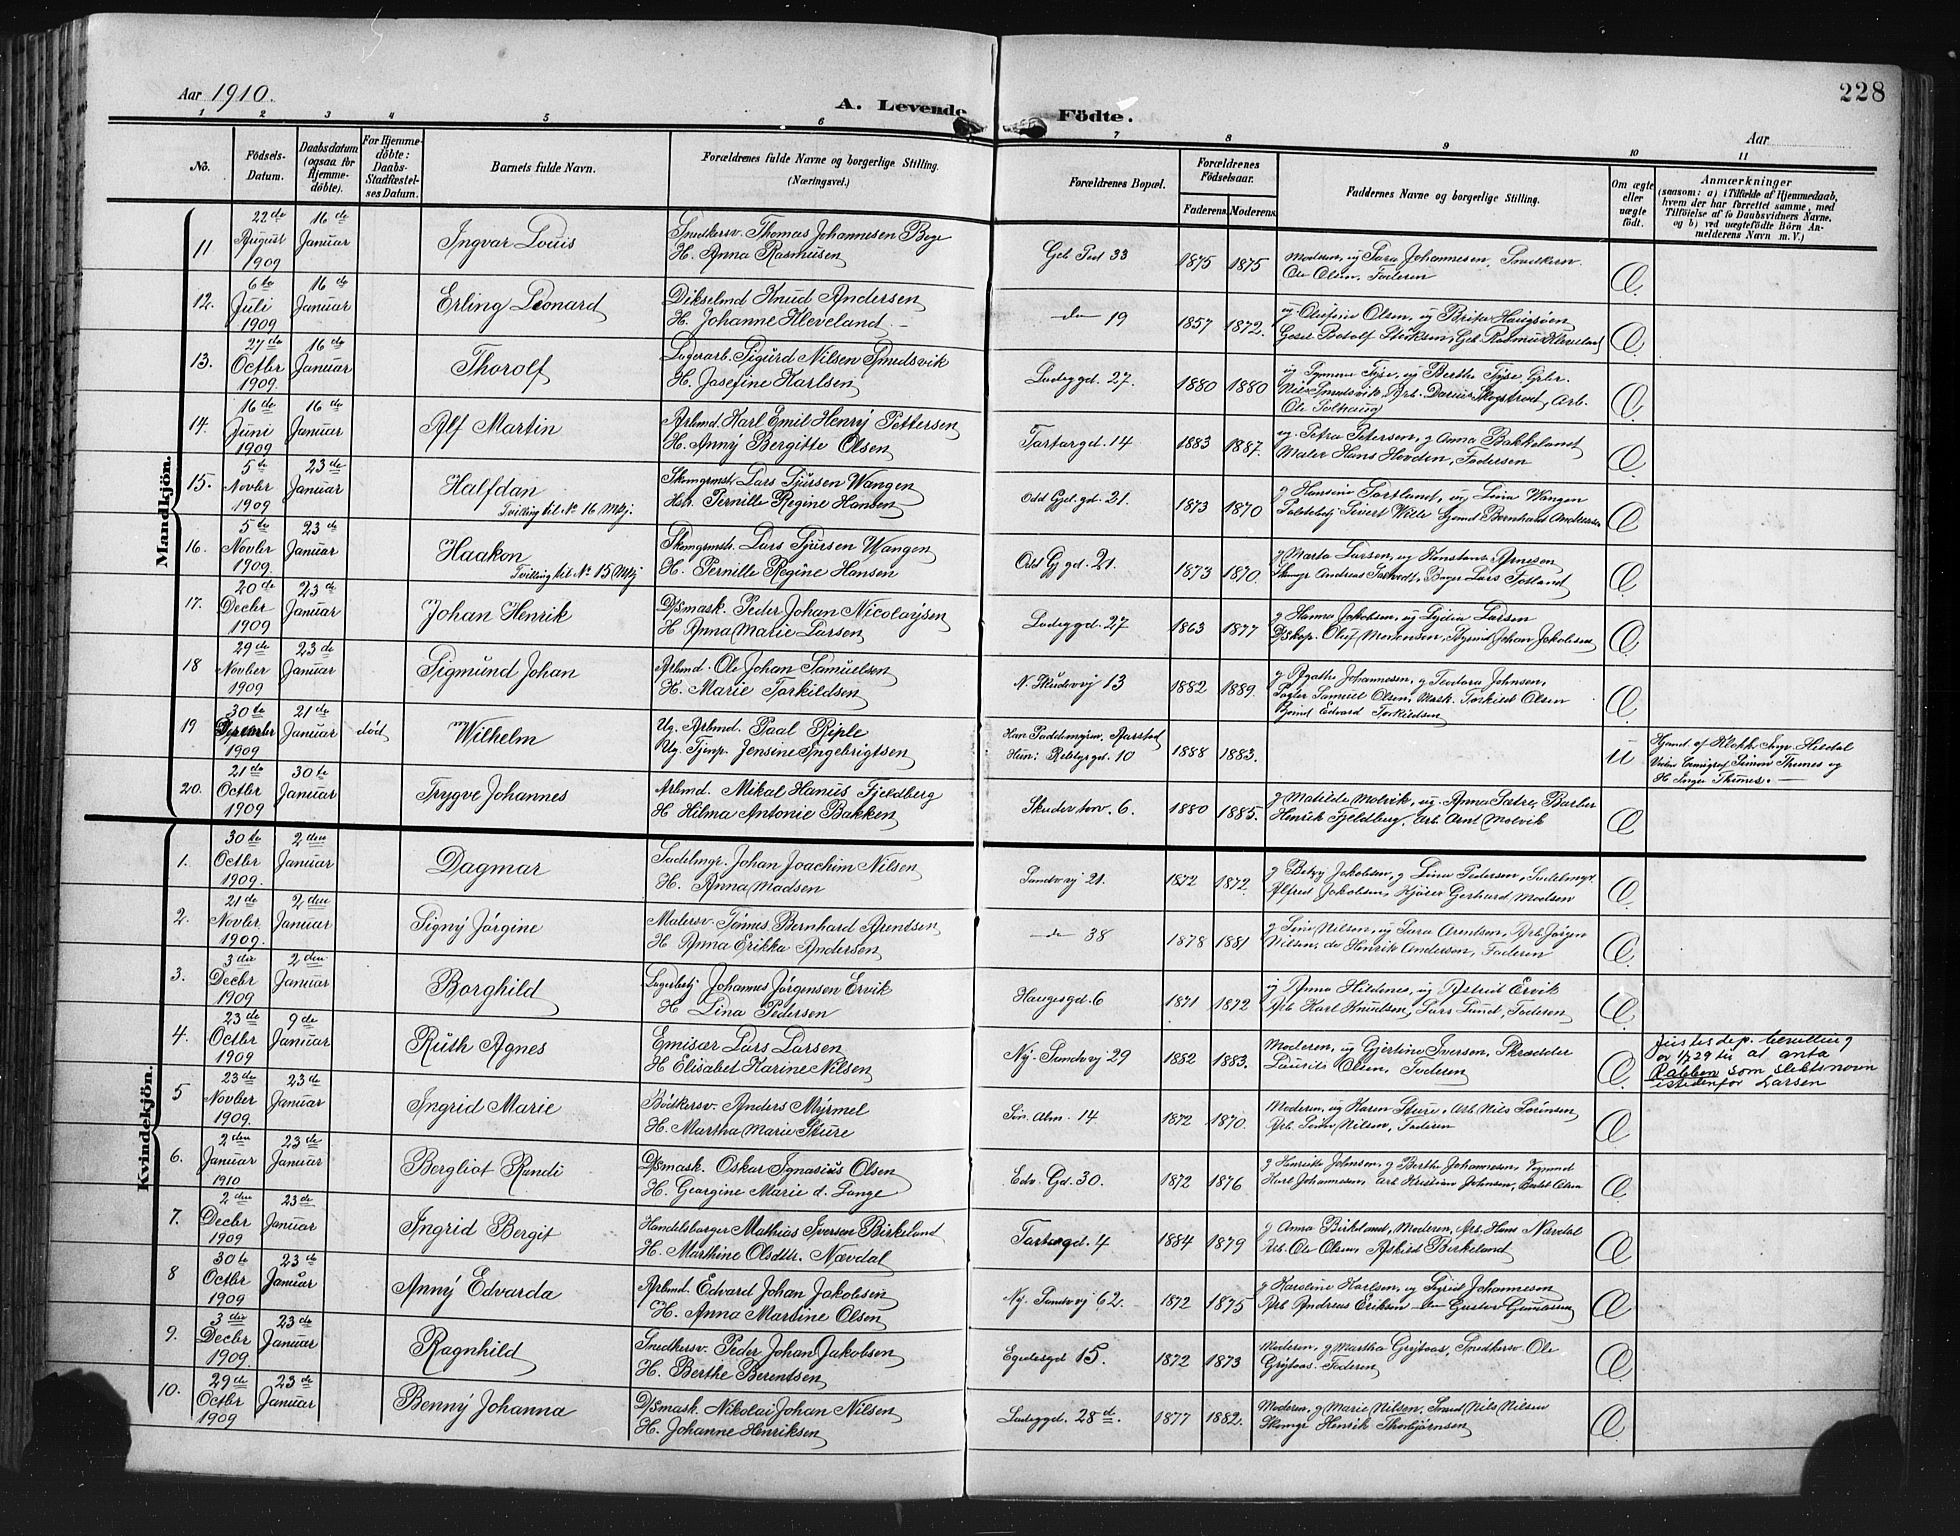 228
Aar 1910.
A. Levende Födte.
Aar
1 2 3 4 5 6 7 8 9 10 11
No.
Födsels-Datum.
Daabsdatum (ogsaa for Hjemmedöbte).
For Hjemmedöbte: Daabs-Stadfæstelses Datum.
Barnets fulde Navn.
Forældrenes fulde Navne og borgerlige Stilling. (Næringsvei.)
Forældrenes Bopæl.
Forældrenes Födselsaar.
Faderens. Moderens.
Faddernes Navne og borgerlige Stilling.
Om ægte eller uægte födt.
Anmærkninger
(saasom: a) i Tilfælde af Hjemmedaab, hvem der har forrettet samme, med Tilföielse af to Daabsvidners Navne, og b) ved uægtefödte Börn Anmelderens Navn m. V.)
Mandkjön.
11 22de August 1909 16de Januar Ingvar Louis
Snedkersv. Thomas Johannesen Boge
H. Anna Rasmusen
33 1875 1875
Moderen, ug Sara Johannesen, Snedkersv.
Ole Olsen, Faderen
Æ
12. 6te Juli 1909 16de Januar Erling Leonard
Knud Andersen
H. Johanne Kleveland
do 19 1857 1872.
ug Olufine Olsen, ug Brita Haugsöen
Æ
13. 27de Octbr 1909. 16de Januar Thorolf
Lagerarb. Sigurd Nilsen Smedsvik
H. Josefine Karlsen
Ladeggd. 27. 1880 1880
Æ
14. 16de Juni 1909 16de Januar Alf Martin
Arbmd. Karl Emil Henrÿ Pettersen
H. Annÿ Bergitte Olsen
Tartargd. 14 1883 1887.
ug. Petra Petersen, g Anna Bakkelund
Maler Hans Hovden, Faderen
Æ
15. 5te Novbr 1909 23de Januar Halfdan
Tvilling til No 16 Mkj.
Skomgrmstr. Lars Sjursen Wangen
Hstr. Pernille Regine Hansen
Odd Gjel. gd. 21. 1873 1870
g Hansine Sortland, ug Lina Wangen
Æ
16. 5te Novbr 1909. 23de Januar Haakon
Tvilling til No 15 Mkj
Skomgrmstr. Lars Sjursen Wangen
H. Pernille Regine Hansen
Odd Gj gd. 21. 1873 1870.
g Marta Larsen, ug Konstanse Arnesen
Æ
17. 20de Decbr 1909 23de Januar Johan Henrik
D/Smask. Peder Johan Nicolaysen
H Anna Marie Larsen
Ladeggd. 27 1863 1877
g Hanna Jakobsen, ug Lydia Larsen
Æ
18 29de Novber 1909 23de Januar Sigmund Johan
Arbmd. Ole Johan Samuelsen
H. Marie Torkildsen
N. Skudevvj 13 1882 1889.
g Agathe Johannesen, g Teodora Johnsen,
Samuel Olsen, Mask. Torkild Olsen
Edvard Torkildsen
Æ
19 30te 1909 21de Januar död Wilhelm
Ug. Arbmd. Paal Riple
Ug. Tjenp. Jensine Ingebrigtsen
Hun: Rebbergd. 10 1888 1883.
U
20. 21de Octbr 1909 30te Januar Trygve Johannes
Arbmd. Mikal Hanus Fjeldberg
H Hilma Antonie Bakken
6. 1880 1885.
g Matilde Molvik, ug. Anna Sætre, Barber
Henrik Fjeldberg, Arb. Arnt Molvik
Æ
Kvindekjön.
1. 30te Octbr 1909. 2den Januar Dagmar
Sadelmgr. Johan Joachim Nilsen
H. Anna Madsen
Sandvvj 21. 1872 1872.
g Betzy Jakobsen, g Lina Pedersen, Sadelmgr.
Alfred Jakobsen, Gerhard Madsen
Æ
2. 21de Novbr. 1909. 2den Januar Signÿ Jörgine
Malersv. Tönnes Bernhard Arentsen
H Anna Erikka Andersen
do 38 1878 1881
g Sina Nilsen, ug Sara Arentsen, Arb. Jörgen
Nilsen, do Henrik Andersen, Faderen
Æ
3. 3die Decbr 1909 2den Januar Borghild
Lagerbetj Johannes Jörgensen Ervik
H Lina Pedersen
Haugesgd 6 1871 1872
ug Anna Hildenes, ug Astrid Ervik
Arb Karl Knudsen, Lars Lund, Faderen
Æ
4. 23de Octbr 1909 9de Januar Ruth Agnes
Emisær Lars Larsen
H Elisabet Karine Nilsen
Ny. Sandvvj 29 1882 1883.
Moderen, ug Gjertine Iversen, Skrædder
Laurits Olsen, Faderen
Æ
Justisdep. bevilling
av 1/7 29 til at anta
Rabben som slektsnavn
istedenfor Larsen
5 23de Novber 1909. 23de Januar Ingrid Marie
Bödkersv. Anders Mÿrmel
H. Martha Marie Sture
Sv. Alm. 14 1872 1870.
Moderen, ug Karen Sture, Arb. Nils Sörensen
Nilsen, Faderen
Æ
6. 2den Januar 1910 23de Januar Bergliot Randi
D/Smask. Oskar Ignasius Olsen
H. Georgine Marie d. Lange
Edv. Gd. 30. 1872 1876
g Henrikke Johnsen, g Berthe Johannesen,
Karl Johannesen, Arb Kristian Johnsen,
Æ
7. 2den Decbr 1909 23de Januar Ingrid Bergit
Handelsborger Mathias Iversen Birkeland
H. Marthine Olsdtr. Nævdal
Tartargd. 4 1884 1879
g Anna Birkeland, Moderen, Arb. Hans Nævdal
Arb. Ole Olsen, Birkeland
Æ
8 30te Octbr 1909 23de Januar Annÿ Edvarda
Arbmd. Edvard Johan Jakobsen
H. Anna Martine Olsen
Ny. Sandvvj 62. 1872 1875
g Karoline Karlsen, ug Sigrid Johannesen
Arb Andreas Eriksen
Æ
9. 3die Decbr 1909 23de Januar Ragnhild
Snedkersv. Peder Johan Jakobsen
H. Berthe Berentsen
Egedesgd 15. 1872 1873
Moderen, g Martha Gröytaas, Snedkersv Ole
Gröytaas, Faderen
Æ
10. 29de Octbr 1909 23de Januar Bennÿ Johanna
D/Smask. Nikolai Johan Nilsen
H. Johanne Henriksen
Ladeggd. 28d. 1877 1882.
Moderen, g Marie Nilsen, Nils Nilsen
Skomgr Henrik Thorbjörnsen
Æ